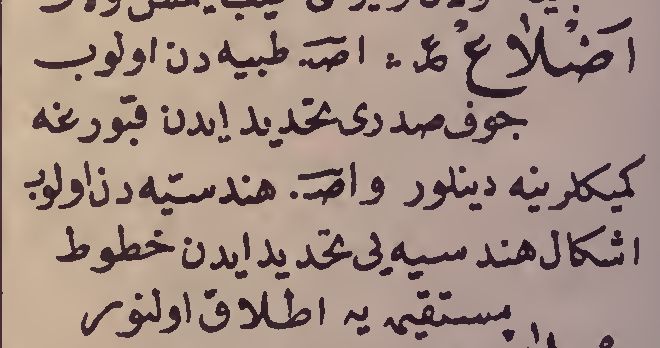 اضلاع ع : اصـ طبيه دن اولوب
جوف صدرى تحديد ايدن قبورغه
كميكلرينه دينلور واصـ. هندسيه دن اولوب
اشكال هندسيه يى تحديد ايدن خطوط
مستقيمه يه اطلاق اولنور